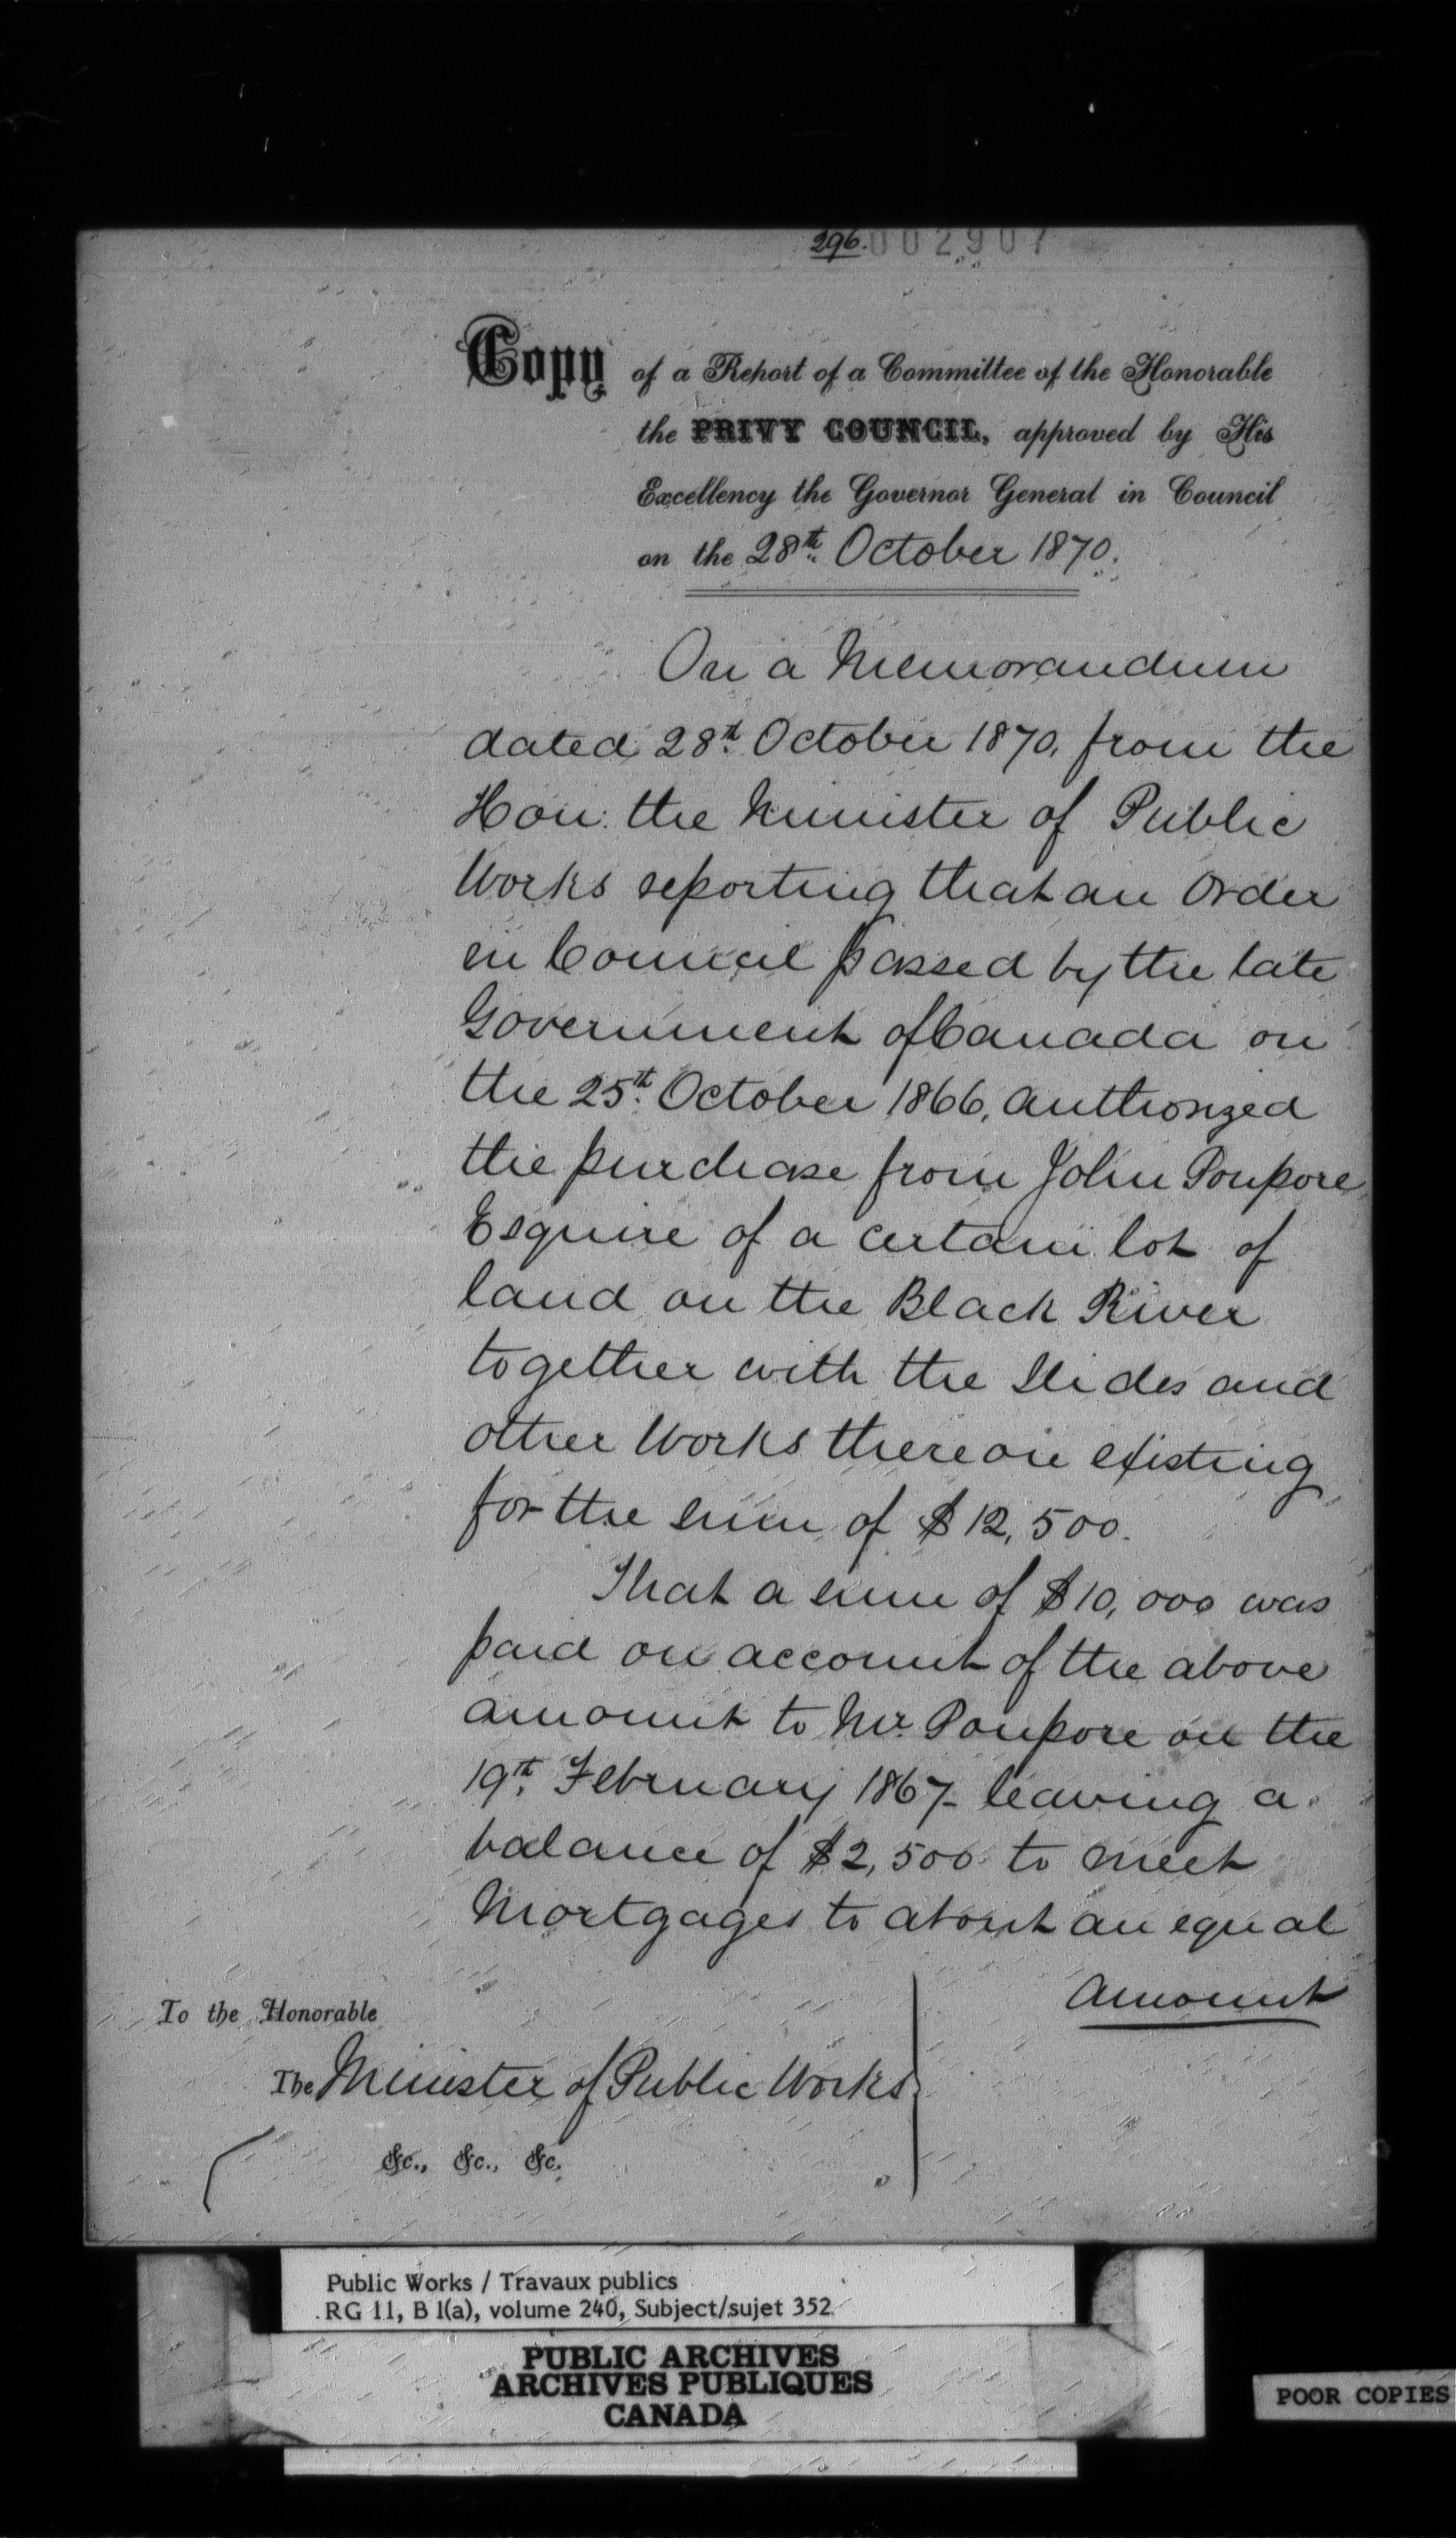 296. 002907
Copy of a Report of a Committee of the Honorable
the PRIVY COUNCIL, approved by His
Excellency the Governor General in Council
on the 28th October 1870.
On a Memorandum
dated 28th October 1870, from the
Hon: the Minister of Public
Works reporting that an Order
in Council passed by the late
Government of Canada on
the 25th October 1866, authorized
the purchase from John Poupore
Esquire of a certain lot of
land on the Black River
together with the Slides and
other Works thereon existing
for the sum of $12,500.
That a sum of $10,000 was
paid on account of the above
amount to Mr. Poupore on the
19th February 1867 - leaving a
balance of $2,500 to meet
Mortgages to about an equal
amount
To the Honorable
The Minister of Public Works
&c., &c., &c.
Public Works / Travaux publics
RG 11, B 1(a), volume 240, Subject/sujet 352
PUBLIC ARCHIVES
ARCHIVES PUBLIQUES
CANADA
POOR COPIES